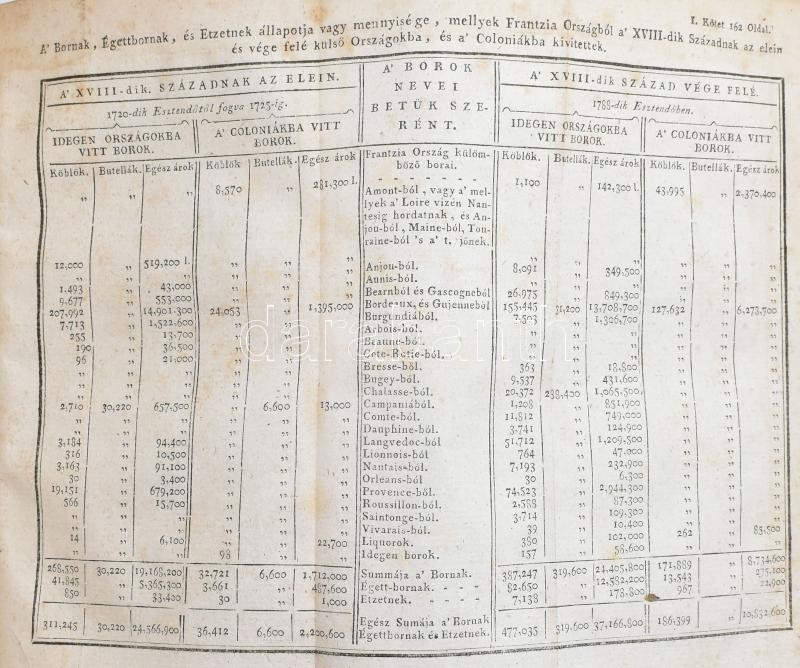 I. Kötet 162 Oldal.
A' Bornak, Égettbornak, és Etzetnek állapotja vagy mennyisége, mellyek Frantzia Országból a' XVIII-dik Századnak az elein
és vége felé külső Országokba, és a' Coloniákba kivitettek.
A' XVIII-dik. SZÁZADNAK AZ ELEIN. A' BOROK NEVEI BETŰK SZERÉNT. A' XVIII-dik SZÁZAD VÉGE FELÉ.
1720-dik Esztendőtől fogva 1725-ig. 1788-dik Esztendőben.
IDEGEN ORSZÁGOKBA VITT BOROK. A' COLONIÁKBA VITT BOROK. IDEGEN ORSZÁGOKBA VITT BOROK. A' COLONIÁKBA VITT BOROK.
Köblök. Butellák. Egész árok Köblök. Butellák. Egész árok Frantzia Ország külömböző borai. Köblök. Butellák. Egész árok Köblök. Butellák. Egész árok
„ „ „ 8,570 „ 281,300 l. Amont-ból, vagy a' mellyek a' Loire vizén Nantesig hordatnak, és Anjou-ból, Maine-ból, Touraine-ból 's a' t. jönek. 1,190 „ 142,300 l. 43,995 „ 2,370,400
12,000 „ 519,200 l. „ „ „ Anjou-ból. 8,091 „ 349,500 „ „ „
Aunis-ból.
1,493 „ 43,000 „ „ „ Bearnból és Gascogneból 26,975 „ 849,300 „ „ „
9,677 „ 553,000
207,992 „ 14,901,300 24,053 „ 1,395,000 Bordeaux, és Gujenneből 155,445 31,200 13,708,700 127,632 „ 6,273,700
7,713 „ 1,522,600 „ „ „ Burgundiából. 7,503 „ 1,306,700 „ „ „
255 „ 13,700 „ „ „ Arbois-ból.
190 „ 36,500 „ „ „ Beaune-ból.
96 „ 21,000 „ „ „ Cote-Rotie-ból.
Bresse-ból. 363 „ 18,800
Bugey-ból. 9,537 „ 431,600
Chalasse-ból. 20,372 288,400 1,065,500
2,710 30,220 657,500 „ 6,600 13,000 Campaniából. 1,208 „ 851,900
Comte-ból. 11,812 „ 749,000
Dauphine-ból. 3,741 „ 124,900
3,184 „ 94,400 „ „ „ Langvedoc-ból. 51,712 „ 1,209,500
316 „ 10,500 „ „ „ Lionnois-ból. 764 „ 47,000
3,163 „ 91,100 „ „ „ Nantais-ból. 7,193 „ 232,900
30 „ 3,400 „ „ „ Orleans-ból 30 „ 6,300
19,151 „ 679,200 „ „ „ Provence-ból. 74,523 „ 2,944,300
566 „ 15,700 „ „ „ Roussillon-ból. 2,588 „ 87,300
Saintonge-ból. 3,714 „ 109,300
Vivarais-ból. 39 „ 10,400
14 „ 6,100 „ „ 22,700 Liquorok. 380 „ 102,000 262 „ 85,500
„ „ „ 98 „ „ Idegen borok. 157 „ 58,600
268,550 30,220 19,168,200 32,721 6,600 1,712,000 Summája a' Bornak. 387,247 319,600 24,405,800 171,889 „ 8,734,600
41,845 „ 5,365,300 3,661 „ 487,600 Égett-bornak. - - 82,650 „ 12,582,200 13,543 „ 275,100
850 „ 33,400 30 „ 1,000 Etzetnek. - - - - 7,138 „ 178,800 967 „ 22,900
311,245 30,220 24,566,900 36,412 6,600 2,200,600 Egész Sumája a' Bornak Égettbornak és Etzetnek. 477,035 319,600 37,166,800 186,399 „ 10,832,600
darabanth